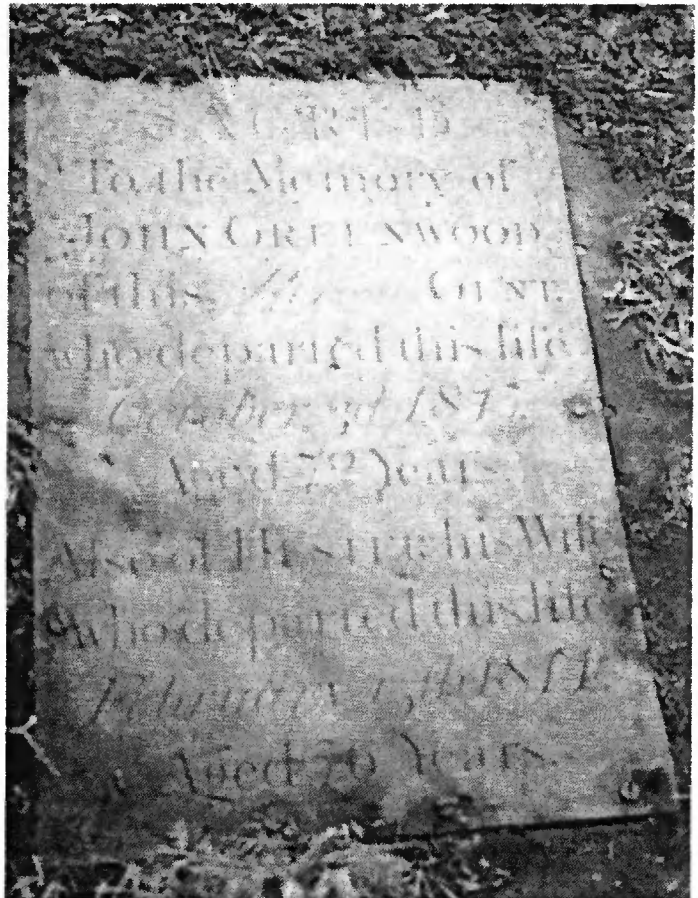 SACRED
To the Memory of
JOHN GREENWOOD
of this GENT.
who departed this life
October
Aged Years
Also of his Wife
who departed this life
February
Aged 76 Years